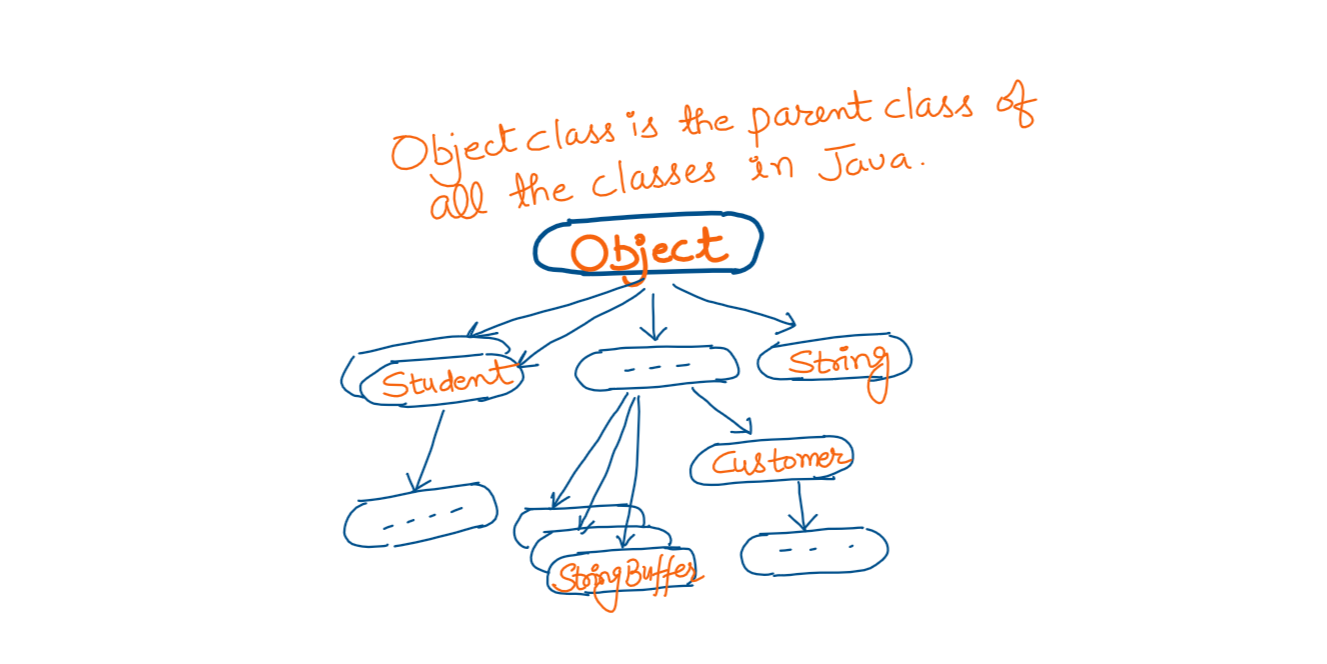 Object class is the parent class of
all the classes in Java.
Object
Student
- - -
String
Customer
- - - - -
- - -
StringBuffer